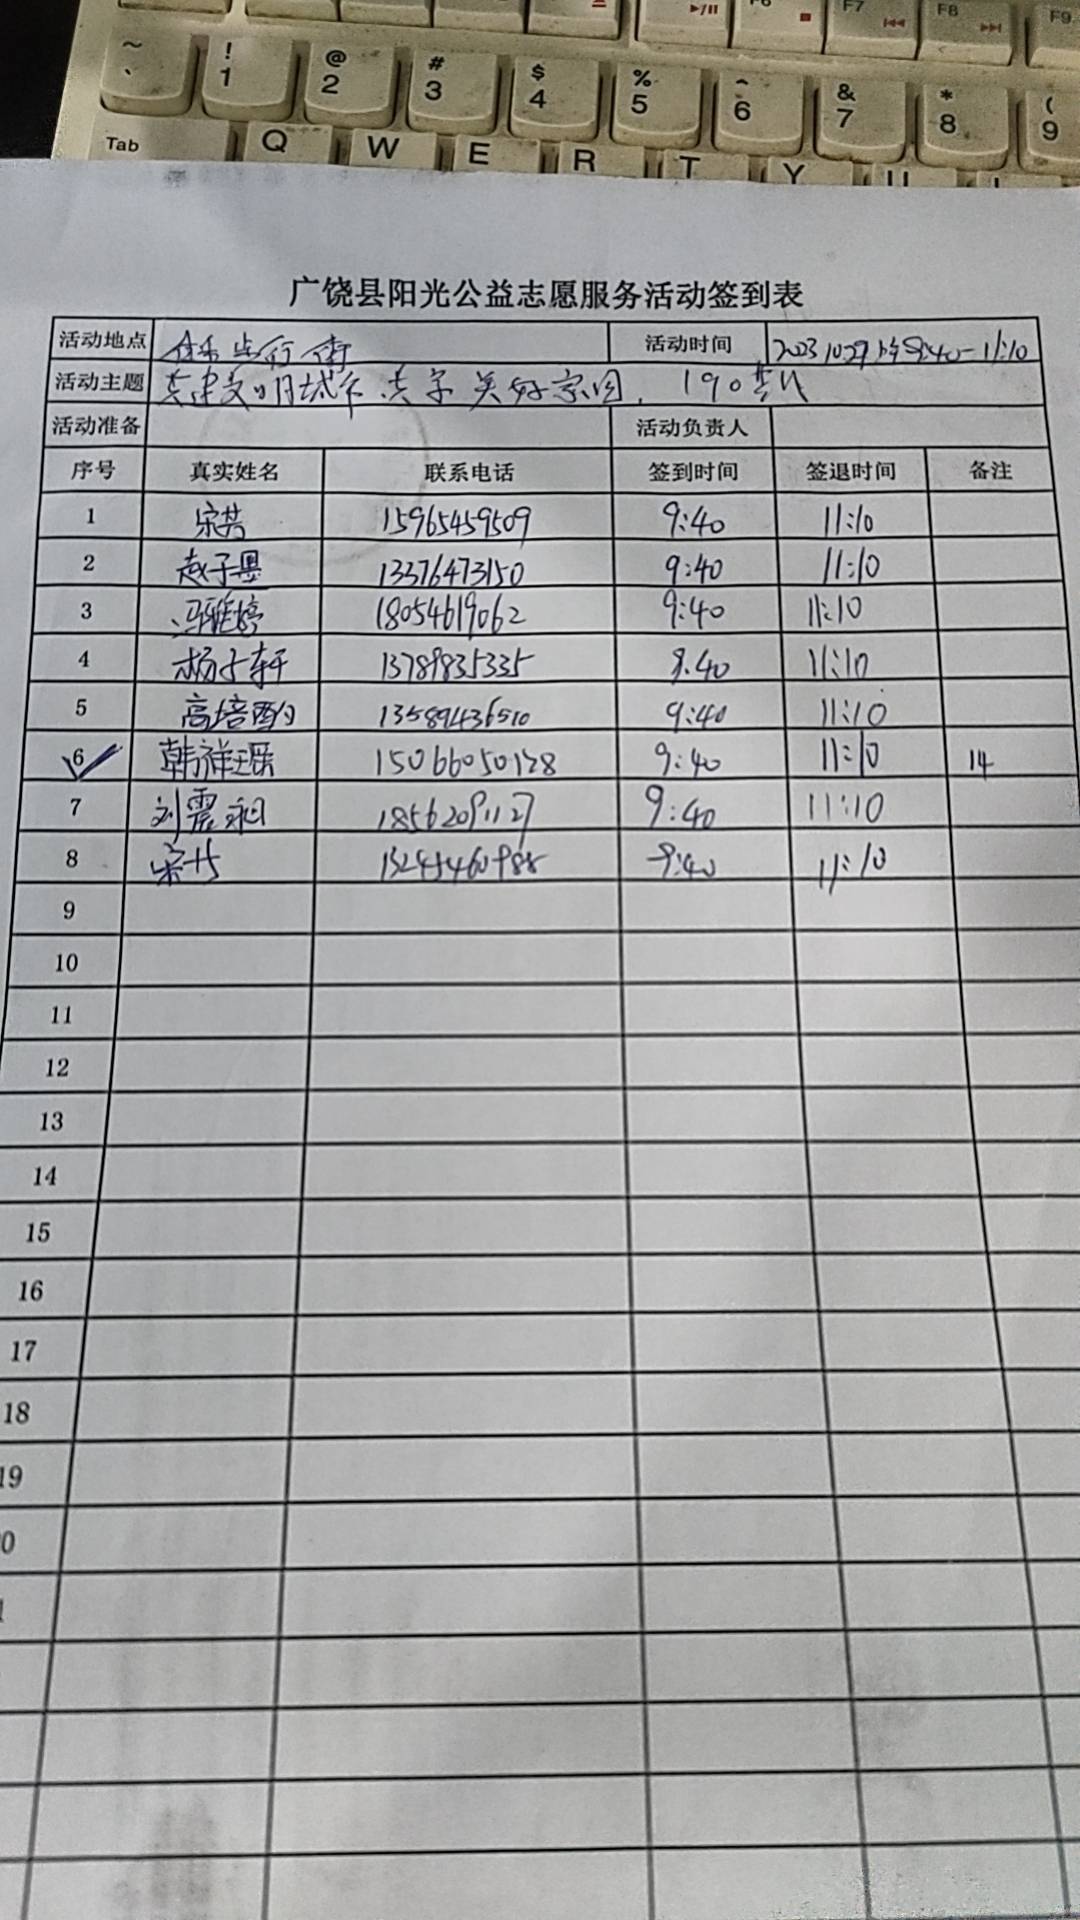 F7 F8 F9
~ ! @ # $ % ^ & * (
` 1 2 3 4 5 6 7 8 9
Tab Q W E R T Y U
广饶县阳光公益志愿服务活动签到表
活动地点 步行街 活动时间 2023 10 29 9:40-11:10
活动主题 共建文明城市 共享美好家园 190
活动准备 活动负责人
序号 真实姓名 联系电话 签到时间 签退时间 备注
1 宋芸 15965459509 9:40 11:10
2 赵子墨 13376473150 9:40 11:10
3 冯雅婷 18054619062 9:40 11:10
4 杨子轩 13789835335 9:40 11:10
5 高培酌 13589436510 9:40 11:10
6 韩祥瑶 15066050128 9:40 11:10 14
7 刘震昶 18562091127 9:40 11:10
8 9:40 11:10
9
10
11
12
13
14
15
16
17
18
19